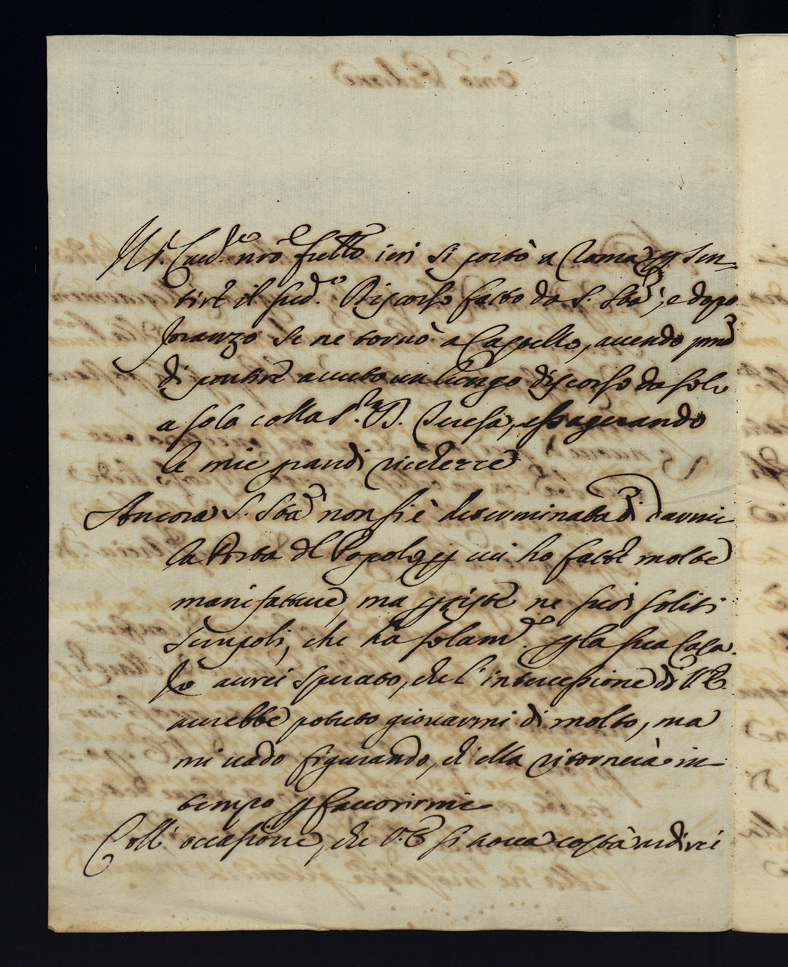 Il S. Cav.re nro fr̃ello ieri si portò a Roma p sen-
tire il sud.o Discorso fatto da S. Stà, e dopo
pranzo se ne tornò a Capello, avendo pma
di partire avuto un lungo discorso da solo
a sola colla S.ra D. Teresa, essagerando
le mie grandi ricchezze
Ancora S. Stà non si è determinata di darmi
la Porta del Popolo, p cui ho fatte molte
manifatture, ma persiste ne suoi soliti
scrupoli, che ha solam.te p la sua Casa.
Io avrei sperato, che l'intercessione di V.E.
averebbe potuto giovarmi di molto, ma
mi vado figurando, ch'ella ritornerà in
tempo p favorirmi
Coll'occasione, che V.E. si trova costà udirei